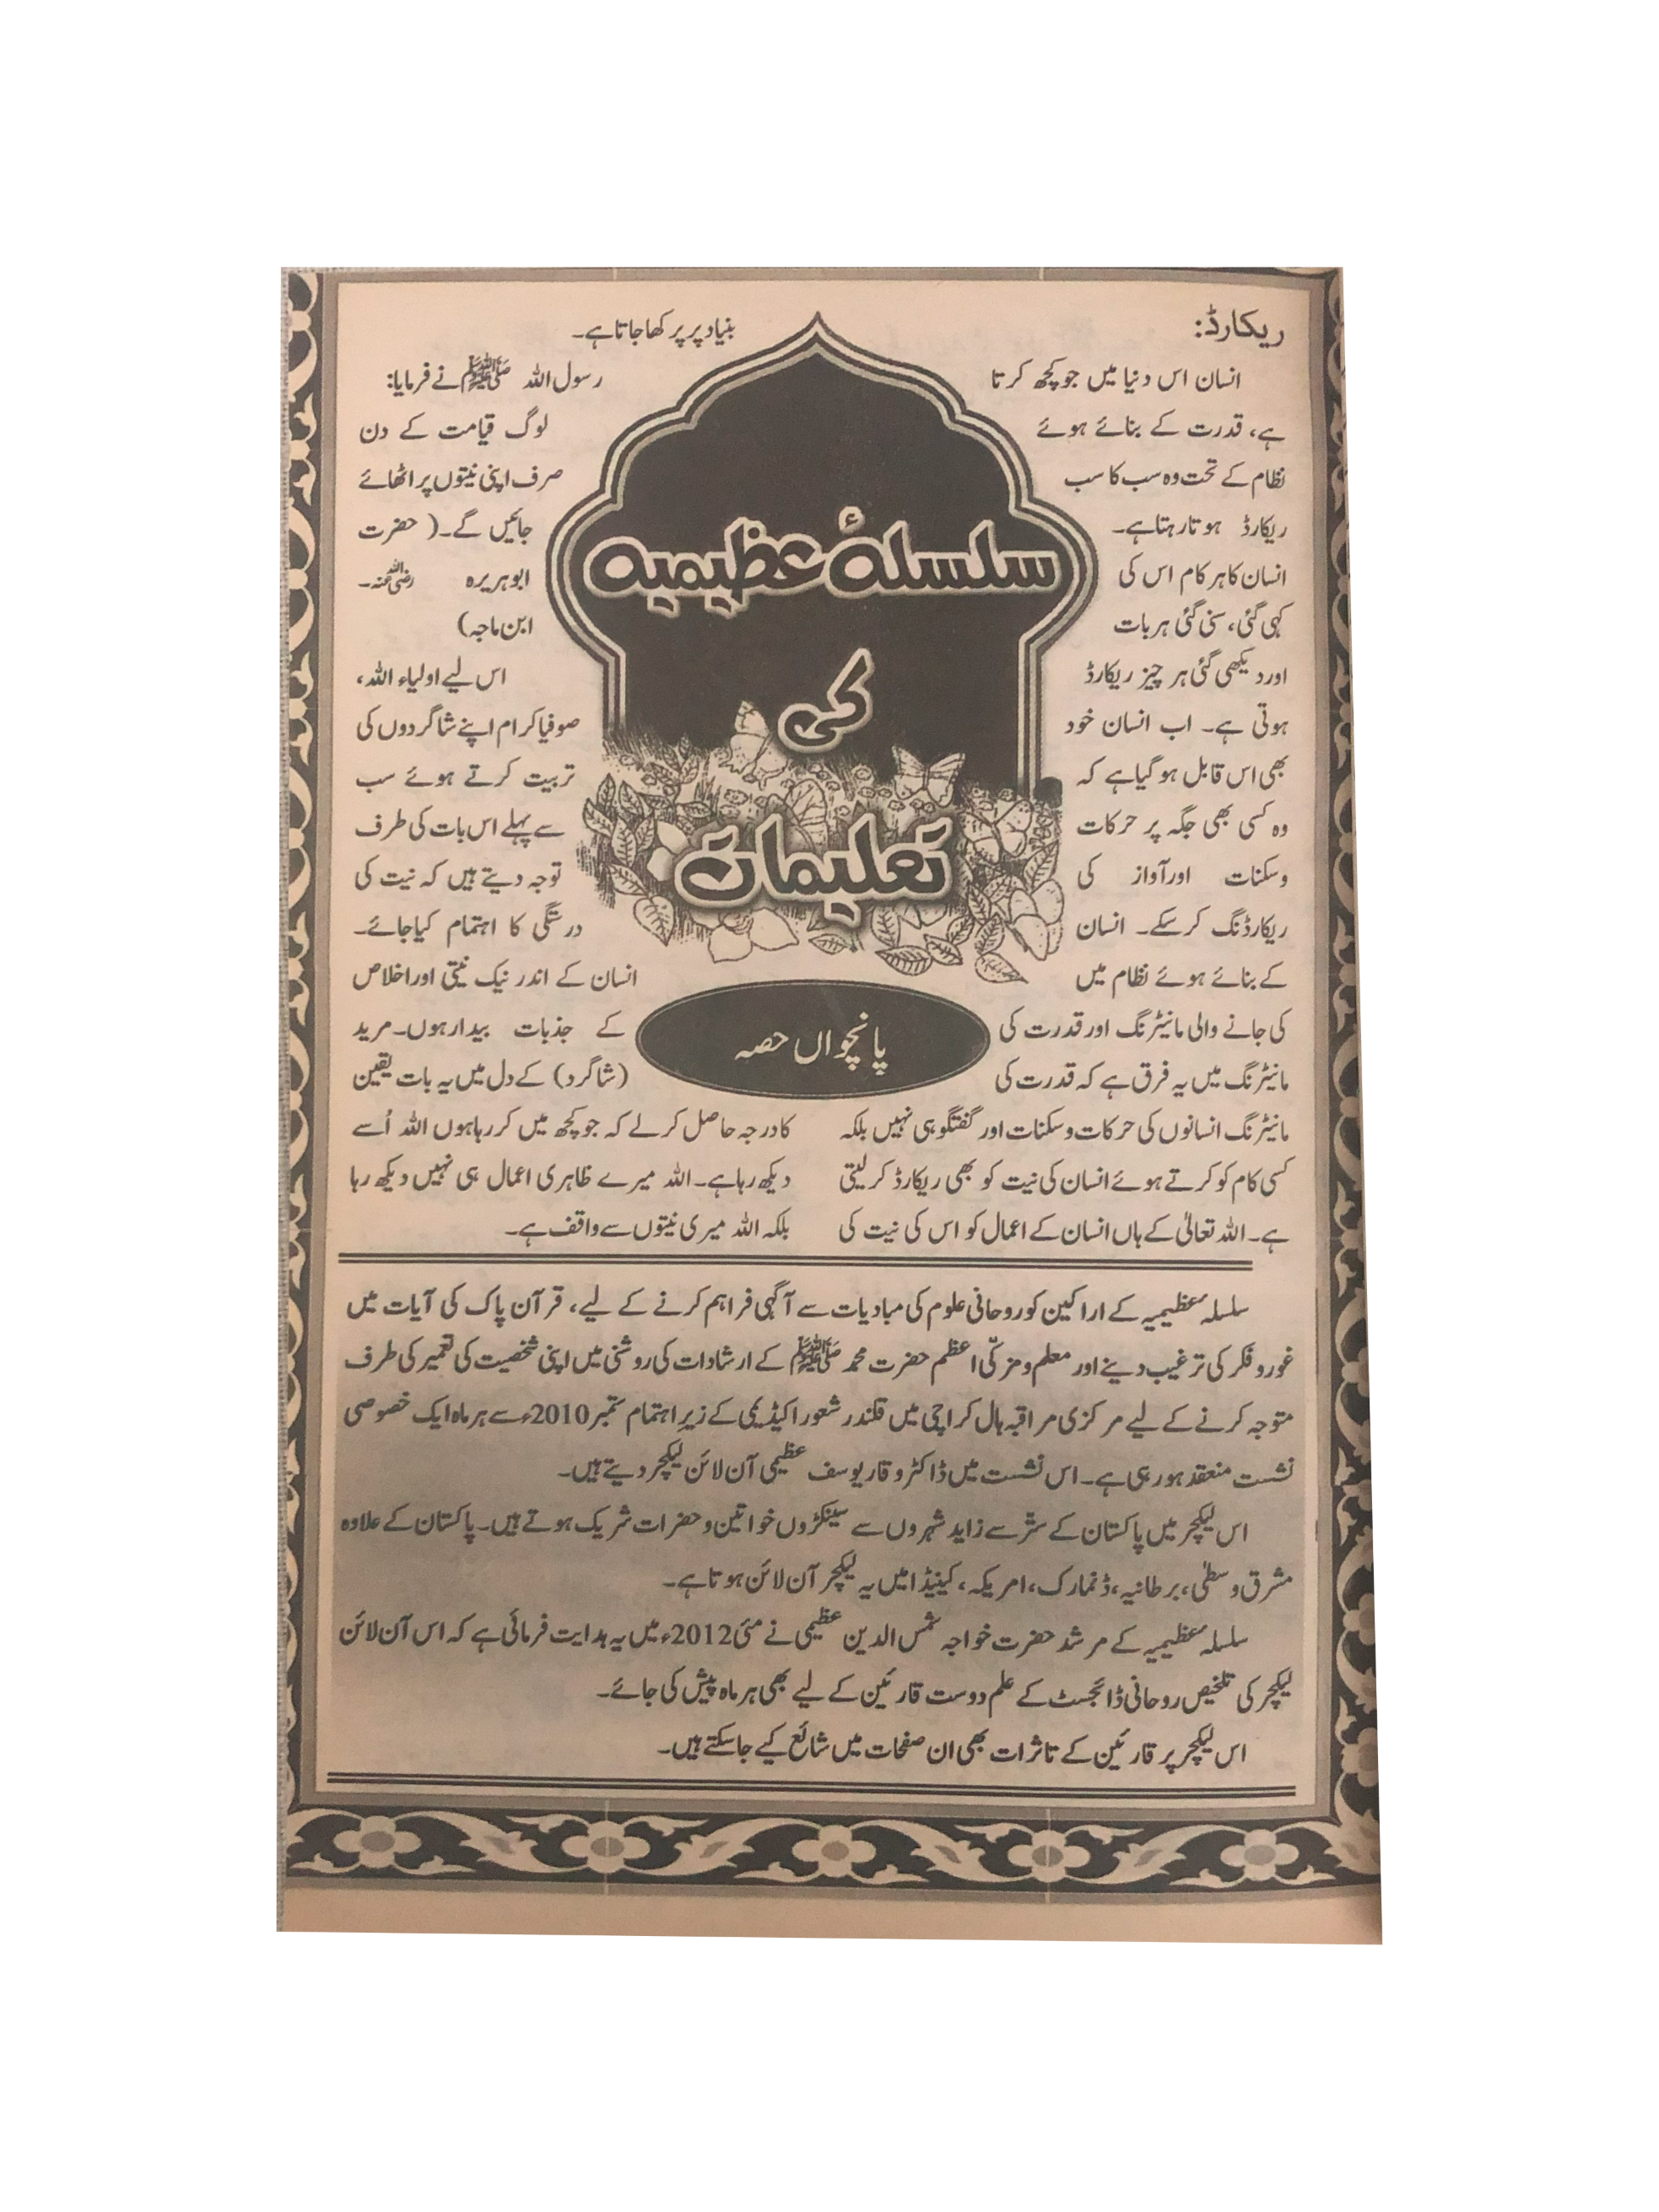 سلسلۂ عظیمیہ
کی
تعلیمات
پانچواں حصہ
ریکارڈ:
انسان اس دنیا میں جو کچھ کرتا
ہے، قدرت کے بنائے ہوئے
نظام کے تحت وہ سب کا سب
ریکارڈ ہوتا رہتا ہے۔
انسان کا ہر کام اس کی
کہی گئی، سنی گئی ہر بات
اور دیکھی گئی ہر چیز ریکارڈ
ہوتی ہے۔ اب انسان خود
بھی اس قابل ہو گیا ہے کہ
وہ کسی بھی جگہ پر حرکات
وسکنات اور آواز کی
ریکارڈنگ کر سکے۔ انسان
کے بنائے ہوئے نظام میں
کی جانے والی مانیٹرنگ اور قدرت کی
مانیٹرنگ میں یہ فرق ہے کہ قدرت کی
مانیٹرنگ انسانوں کی حرکات وسکنات اور گفتگو ہی نہیں بلکہ
کسی کام کو کرتے ہوئے انسان کی نیت کو بھی ریکارڈ کر لیتی
ہے۔ اللہ تعالیٰ کے ہاں انسان کے اعمال کو اس کی نیت کی
بنیاد پر پرکھا جاتا ہے۔
رسول اللہ ﷺ نے فرمایا:
لوگ قیامت کے دن
صرف اپنی نیتوں پر اٹھائے
جائیں گے۔( حضرت
ابوہریرہ رضی اللہ عنہ۔
ابن ماجہ)
اس لیے اولیاء اللہ،
صوفیا کرام اپنے شاگردوں کی
تربیت کرتے ہوئے سب
سے پہلے اس بات کی طرف
توجہ دیتے ہیں کہ نیت کی
درستگی کا اہتمام کیا جائے۔
انسان کے اندر نیک نیتی اور اخلاص
کے جذبات بیدار ہوں۔ مرید
(شاگرد) کے دل میں یہ بات یقین
کا درجہ حاصل کر لے کہ جو کچھ میں کر رہا ہوں اللہ اُسے
دیکھ رہا ہے۔ اللہ میرے ظاہری اعمال ہی نہیں دیکھ رہا
بلکہ اللہ میری نیتوں سے واقف ہے۔
سلسلہ عظیمیہ کے اراکین کو روحانی علوم کی مبادیات سے آگہی فراہم کرنے کے لیے، قرآن پاک کی آیات میں
غور و فکر کی ترغیب دینے اور معلم و مزکّی اعظم حضرت محمد ﷺ کے ارشادات کی روشنی میں اپنی شخصیت کی تعمیر کی طرف
متوجہ کرنے کے لیے مرکزی مراقبہ ہال کراچی میں قلندر شعور اکیڈیمی کے زیر اہتمام ستمبر 2010ء سے ہر ماہ ایک خصوصی
نشست منعقد ہو رہی ہے۔ اس نشست میں ڈاکٹر وقار یوسف عظیمی آن لائن لیکچر دیتے ہیں۔
اس لیکچر میں پاکستان کے ستّر سے زاید شہروں سے سینکڑوں خواتین و حضرات شریک ہوتے ہیں۔ پاکستان کے علاوہ
مشرق وسطیٰ، برطانیہ، ڈنمارک، امریکہ، کینیڈا میں یہ لیکچر آن لائن ہوتا ہے۔
سلسلہ عظیمیہ کے مرشد حضرت خواجہ شمس الدین عظیمی نے مئی 2012ء میں یہ ہدایت فرمائی ہے کہ اس آن لائن
لیکچر کی تلخیص روحانی ڈائجسٹ کے علم دوست قارئین کے لیے بھی ہر ماہ پیش کی جائے۔
اس لیکچر پر قارئین کے تاثرات بھی ان صفحات میں شائع کیے جا سکتے ہیں۔